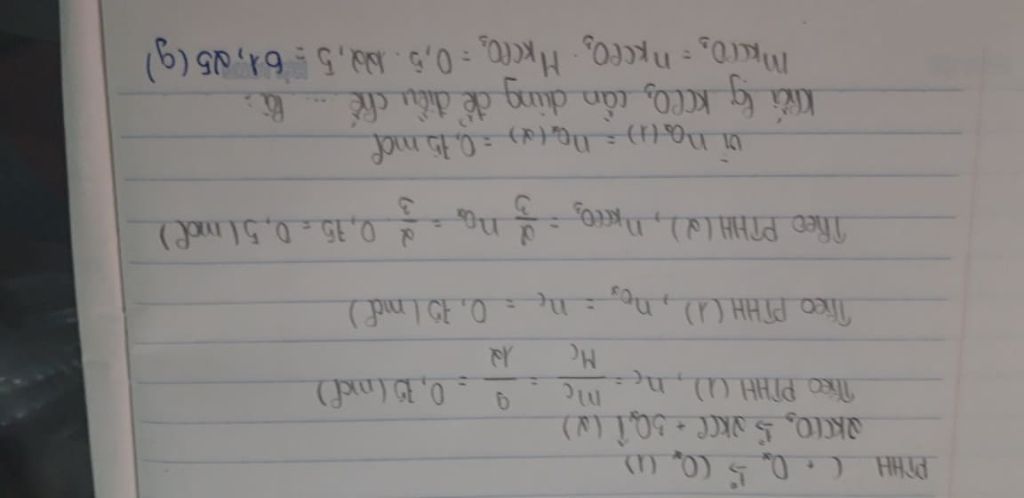 PTHH C + O₂ t° → CO₂ (1)
2KClO₃ t° → 2KCl + 3O₂↑ (2)
Theo PTHH (1), nC = mC / MC = 9 / 12 = 0,75 (mol)
Theo PTHH (1), nO₂ = nC = 0,75 (mol)
Theo PTHH (2), nKClO₃ = 2/3 nO₂ = 2/3 . 0,75 = 0,5 (mol)
Vì nO₂ (1) = nO₂ (2) = 0,75 mol
Khối lg KClO₃ cần dùng để điều chế ... là:
mKClO₃ = nKClO₃ . MKClO₃ = 0,5 . 122,5 = 61,25 (g)